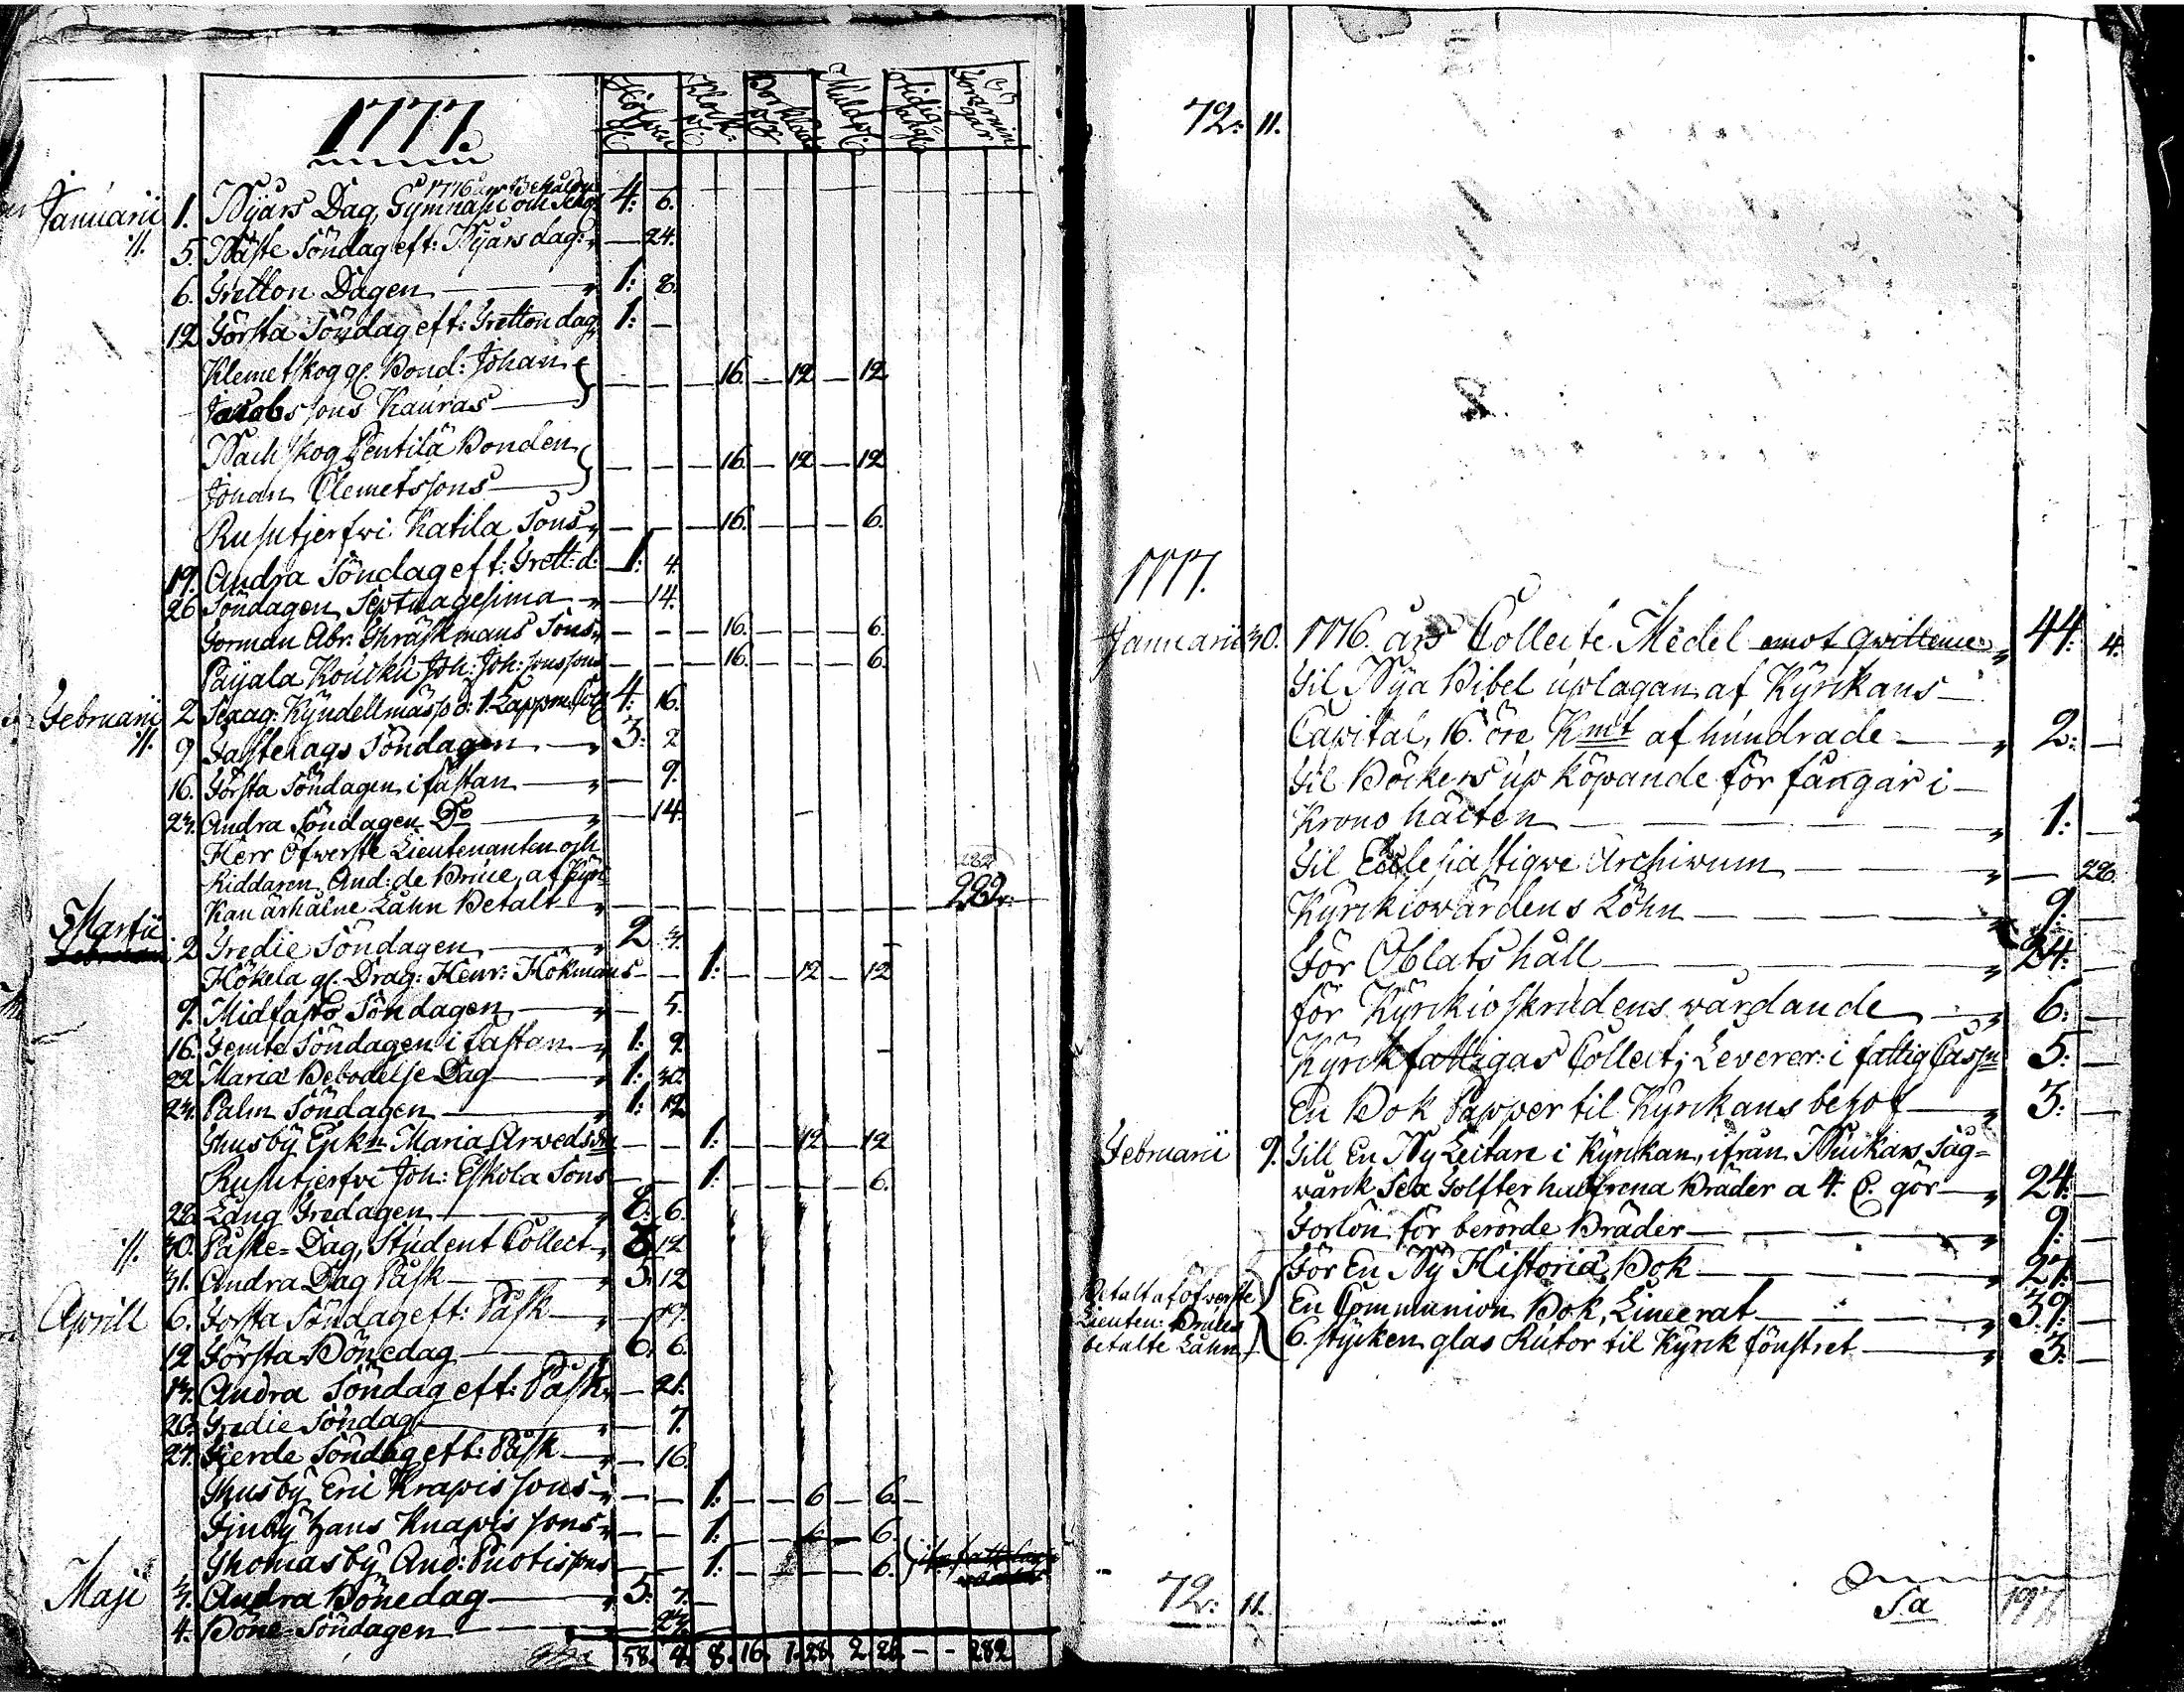 1777.
Januarii 1. Nyårs Dag, Gymnasii och 4: 6.
5. Näste Söndag eft: Nyårsdag — 24.
6. Tretton Dagen 1: 8.
12 Första Söndag eft: Tretton dag 1: —
Klemetskog gl Bond: Johan
Jacobssons Kauras — — — 16. — 12 — 12
Nachskog Pentilä Bonden
Johan Clemetssons — — — 16. — 12 — 12
Rusutjerfwi Katila Sons — — — 16. — — — 6.
19. Andra Söndag eft: Trett: d: 1: 4.
26 Söndagen Septuagesima — 14.
Abr: Sons — — — 16. — — — 6.
Joh: Joh:sons sons — — — 16. — — — 6.
Februarii 2 Sexag: Kyndellmässo d: 4: 16.
9 Fastelags Söndagen 3: 2
16. Första Söndagen i fastan — 9.
23. Andra Söndagen Do — 14.
Herr Öfwerste Lieutenanten och
Riddaren And: de Bruce, af Kyr-
kan ärhålne Låhn Betalt 282
Martii 2 Tredie Söndagen 2 3.
Hökela gl. Drag: Henr: Hökmans — — 1: — — 12 — 12
9. Midfasto Söndagen — 5.
16. Femte Söndagen i fastan 1: 9.
22 Mariæ Bebodelse Dag 1: 30.
23. Palm Söndagen 1: 12
Thusby Enkn Maria Arwedsdr — — 1: — — 12 — 12
Rusutjerfvi Joh: Eskola Sons — — 1: — — — — 6.
28 Lång Fredagen 8: 6.
30. Påske-Dag, Student Collect 8 12
31. Andra Dag Påsk 5. 12
Aprill 6. Första Söndag eft: Påsk — 17.
12 Första Bönedag 6. 6.
13. Andra Söndag eft: Påsk — 21.
20. Tredie Söndag — 7.
27. Fjerde Söndag eft: Påsk — 16.
Thusby Eric Krapis sons — — 1: — — 6 — 6. —
Finby Hans Knapis sons — — 1: — — 6 — 6.
Thomasby And: Puotis sons — — 1: — — — — 6.
Maji 3. Andra Bönedag 5. 7.
4. Böne Söndagen — 23.
58. 4. 8. 16. 1. 28. 2. 28. — — 282
72: 11.
1777.
Januarii 30. 1776. års Collecte Medel emot qwittence 44: 4.
Til Nya Bibel uplagan af Kyrkans
Capital, 16. öre Kmt af hundrade 2: —
Til Böckers up köpande för fångar i
Krono häcten 1: —
Til Eclesiastiqve Archivum — 28.
Kyrckiowärdens Löhn 9: —
För Oblats håll 24: —
för Kyrckioskrudens wårdande 6: —
Kyrckfattigas Collect; Leverer: i fattig Cassn 5: —
En Bok Papper til Kyrckans behof 3: —
Februarii 9. Till En Ny Lectare i Kyrckan, ifrån Nuckars Såg-
wärck Sex Tolfter halfrena Bräder a 4. C. gör 24: —
Forlön för berörde Bräder 9: —
För En Ny Historiæ Bok 27: —
Betalt af öfwerste
En Communion Bok, Linierat 39: —
Lieuten: Bruces
6. stycken glas Rutor til Kyrck fönstret 3: —
betalte Låhn
72: 11.
Sa